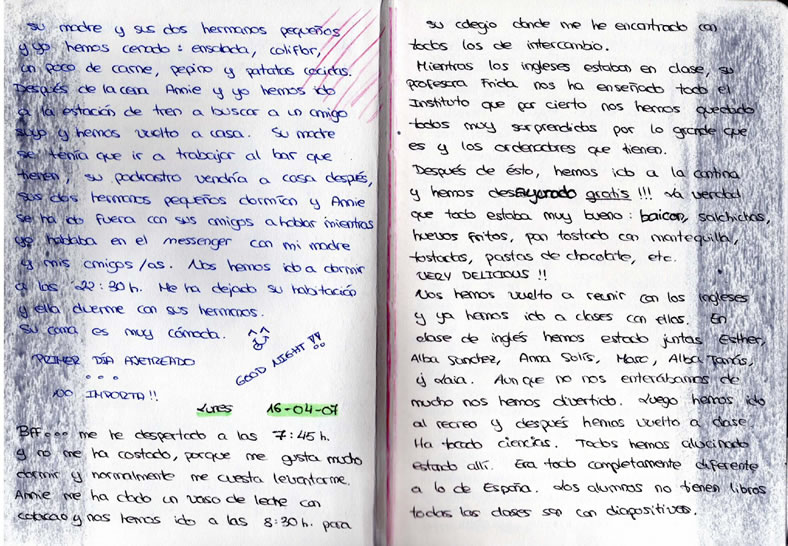 su madre y sus dos hermanos pequeños
y yo hemos cenado: ensalada, coliflor,
un poco de carne, pepino y patatas cocidas.
Después de la cena Annie y yo hemos ido
a la estación de tren a buscar a un amigo
suyo y hemos vuelto a casa. Su madre
se tenía que ir a trabajar al bar que
tienen, su padrastro vendría a casa después,
sus dos hermanos pequeños dormían y Annie
se ha ido fuera con sus amigos a hablar mientras
yo hablaba en el messenger con mi madre
y mis amigos/as. Nos hemos ido a dormir
a las 22:30h. Me ha dejado su habitación
y ella duerme con sus hermanos.
Su cama es muy cómoda.
PRIMER DÍA AJETREADO
...
NO IMPORTA!!
GOOD NIGHT!!
Lunes 16-04-07
Bff... me he despertado a las 7:45h.
y no me ha costado, porque me gusta mucho
dormir y normalmente me cuesta levantarme.
Annie me ha dado un vaso de leche con
colacao y nos hemos ido a las 8:30h. para
su colegio donde me he encontrado con
todos los de intercambio.
Mientras los ingleses estaban en clase, su
profesora Frida nos ha enseñado todo el
Instituto que por cierto nos hemos quedado
todos muy sorprendidos por lo grande que
es y los ordenadores que tienen.
Después de ésto, hemos ido a la cantina
y hemos desayunado gratis!!! La verdad
que todo estaba muy bueno: baicon, salchichas,
huevos fritos, pan tostado con mantequilla,
tostadas, pastas de chocolate, etc.
VERY DELICIOUS!!
Nos hemos vuelto a reunir con los Ingleses
y ya hemos ido a clases con ellos. En
clase de inglés hemos estado juntas Esther,
Alba Sanchez, Anna Solís, Marc, Alba Tomás,
y Laia. Aunque no nos enterábamos de
mucho nos hemos divertido. Luego hemos ido
al recreo y después hemos vuelto a clase.
Ha tocado ciencias. Todos hemos alucinado
estando allí. Era todo completamente diferente
a lo de España. Los alumnos no tienen libros
todas las clases son con diapositivas.